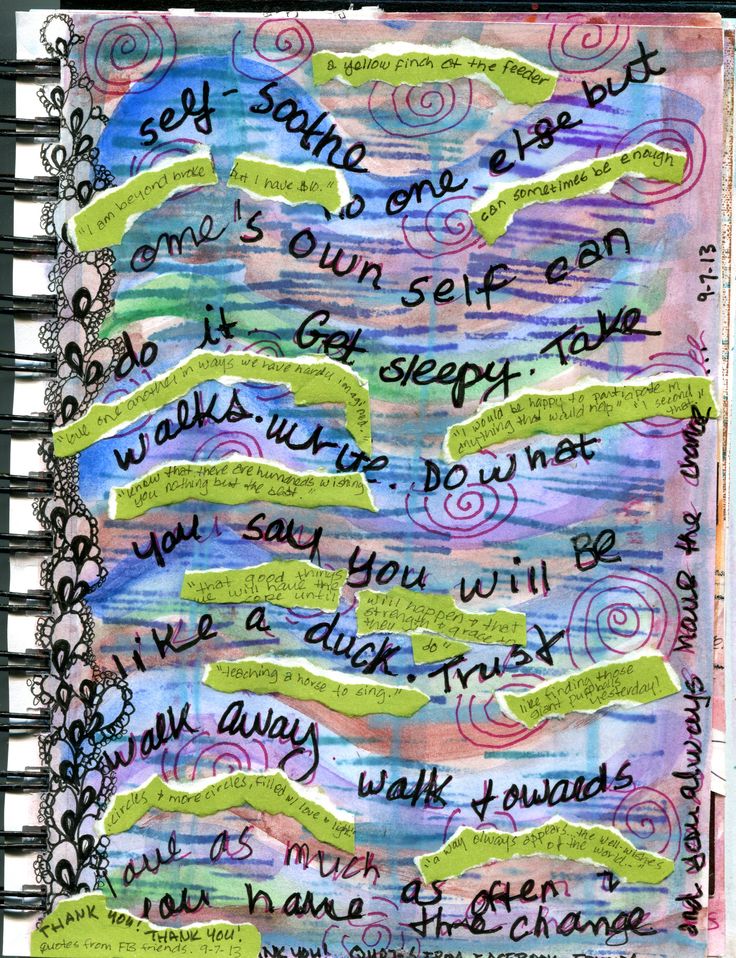 a yellow finch at the feeder
self-soothe
no one else but
"I am beyond broke
but I have $10."
can sometimes be enough
one's own self can
do it. Get sleepy. Take
"love one another in ways we have hardly imagined."
"I would be happy to participate in
anything that would help" "I second
that."
walks. Write. Do what
"know that there are hundreds wishing
you nothing but the best."
you say you will Be
"that good things
will happen & that
we will have the
strength & grace to
cope until
they do"
like a duck. Trust
"teaching a horse to sing."
like finding those
giant puffballs
yesterday!
walk away. walk towards
circles & more circles, filled w/ love & light
"a way always appears...the well-wishes
of the world..."
love as much as often &
you have the change
and you always have the change
9-7-13
THANK YOU!
THANK YOU!
quotes from FB friends. 9-7-13